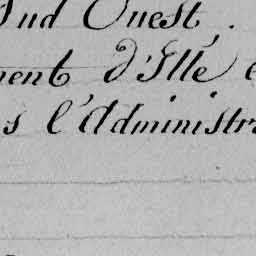 Sud Ouest.
ment d'Ille e
s l'Administra